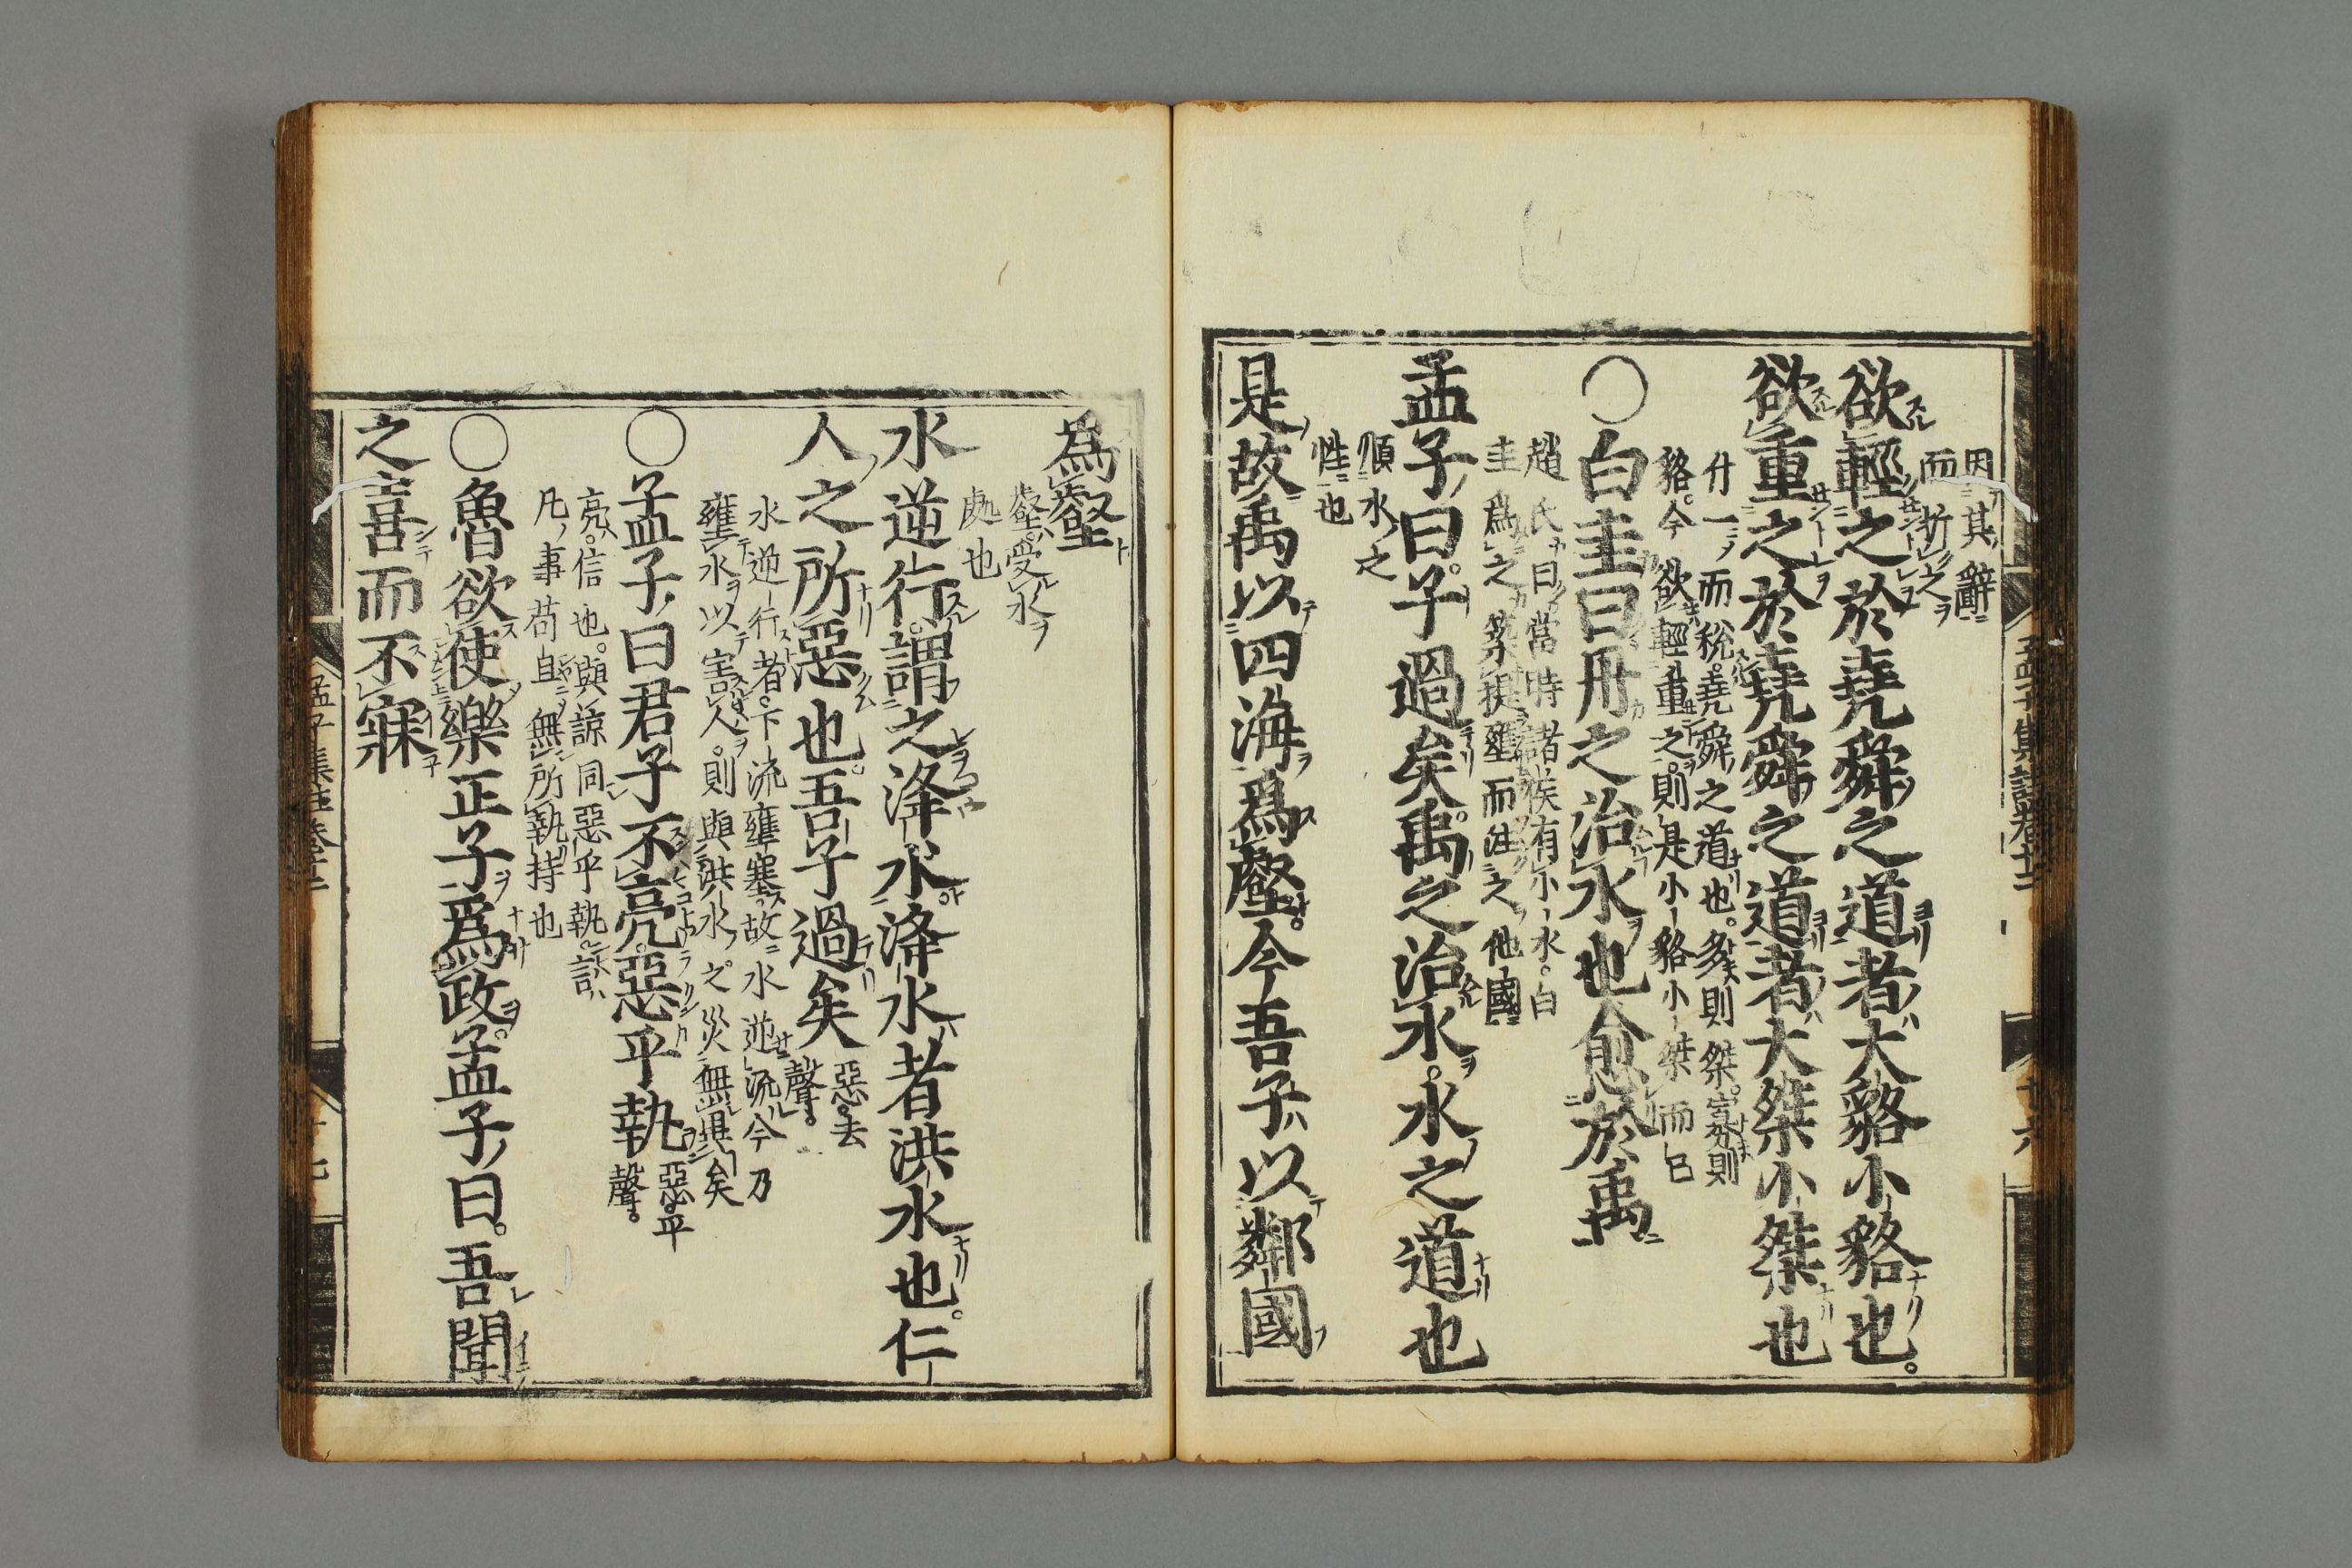 因其辭
而折之
欲輕之於堯舜之道者大貉小貉也
欲重之於堯舜之道者大桀小桀也
什一而稅堯舜之道也多則桀寡則
貉今欲輕重之則是小貉小桀而已
○白圭曰丹之治水也愈於禹
趙氏曰當時諸侯有小水白
圭爲之築堤壅而注之他國
孟子曰子過矣禹之治水水之道也
順水之
性也
是故禹以四海爲壑今吾子以鄰國
爲壑
壑受水
處也
水逆行謂之洚水洚水者洪水也仁
人之所惡也吾子過矣
惡去
聲
水逆行者下流壅塞故水逆流今乃
壅水以害人則與洪水之災無異矣
○孟子曰君子不亮惡乎執
惡平
聲
亮信也與諒同惡乎執言
凡事苟且無所執持也
○魯欲使樂正子爲政孟子曰吾聞
之喜而不寐
孟子集註卷十二